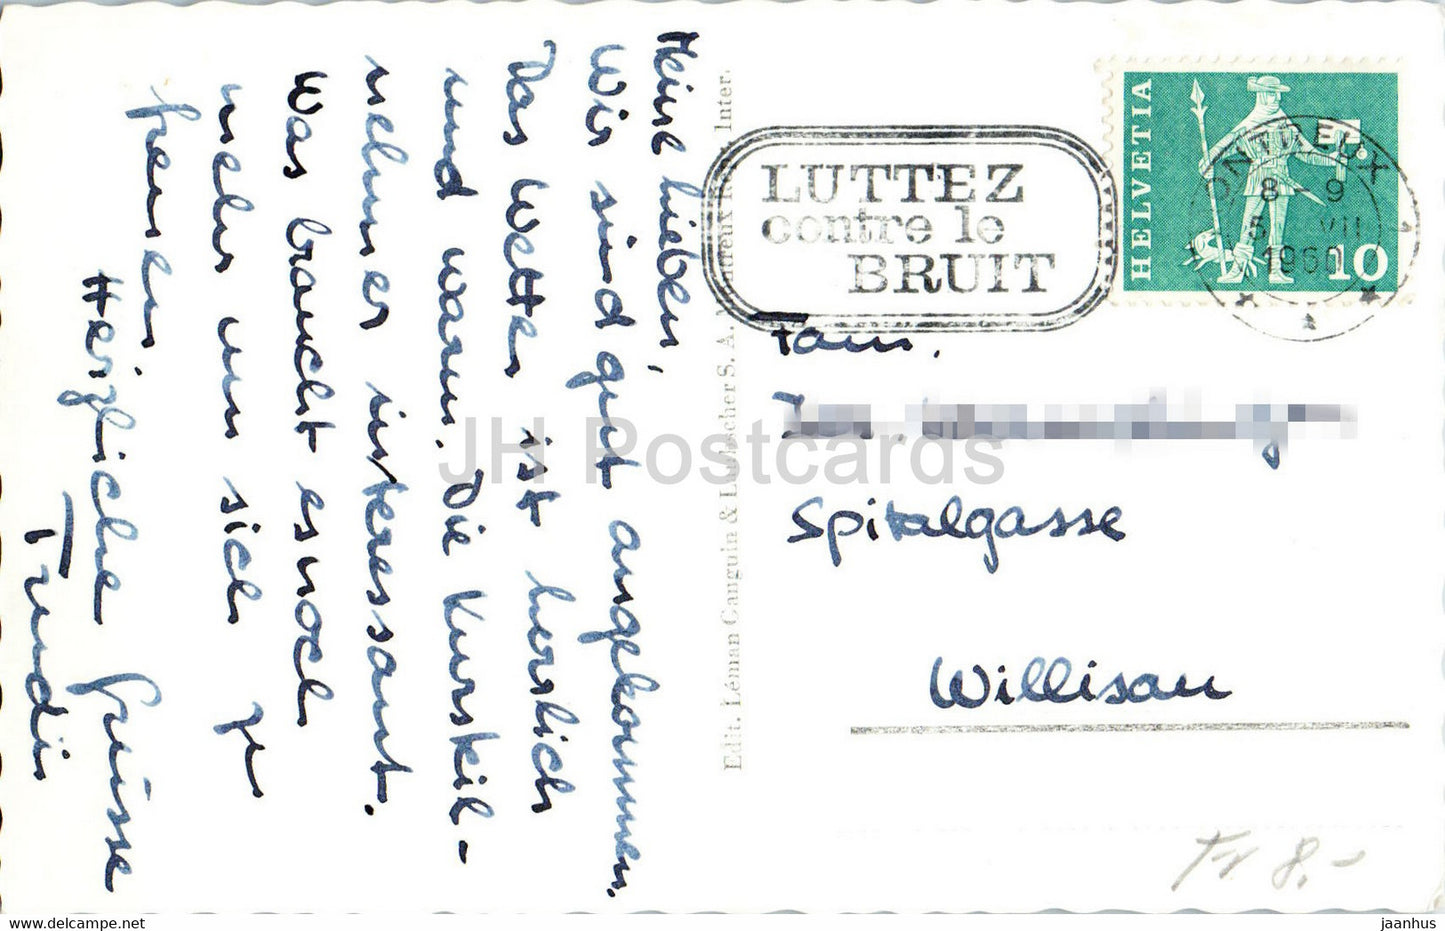 Meine Lieben,
Wir sind gut angekommen.
Das Wetter ist herrlich
und warm. Die Kurskil-
nehmer interessant.
Was braucht es noch
mehr um sich zu
freuen
Herzliche Grüsse
Trudi
Edit. Léman Canguin & Lubscher S. A. Montreux Inter.
LUTTEZ
contre le
BRUIT
HELVETIA
10
MONTREUX
8-9
5. VII
1960
Fam.
Spitalgasse
Willisau
Fr 8.-
JH Postcards
https://jhpostcards.com
jaanhus